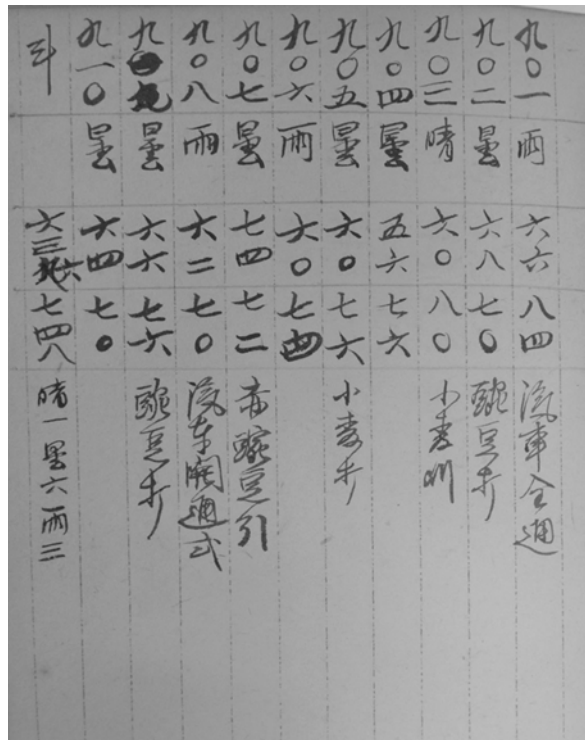 九〇一 雨 六六 八四 汽車全通
九〇二 曇 六八 七〇 豌豆打
九〇三 晴 六〇 八〇 小麦刈
九〇四 曇 五六 七六
九〇五 曇 六〇 七六 小麦打
九〇六 雨 六〇 七四
九〇七 曇 七四 七二 赤豌豆引
九〇八 雨 六二 七〇 汽车開通式
九〇九 曇 六六 七六 豌豆打
九一〇 曇 六四 七〇
六三六 七四八 晴一曇六雨三